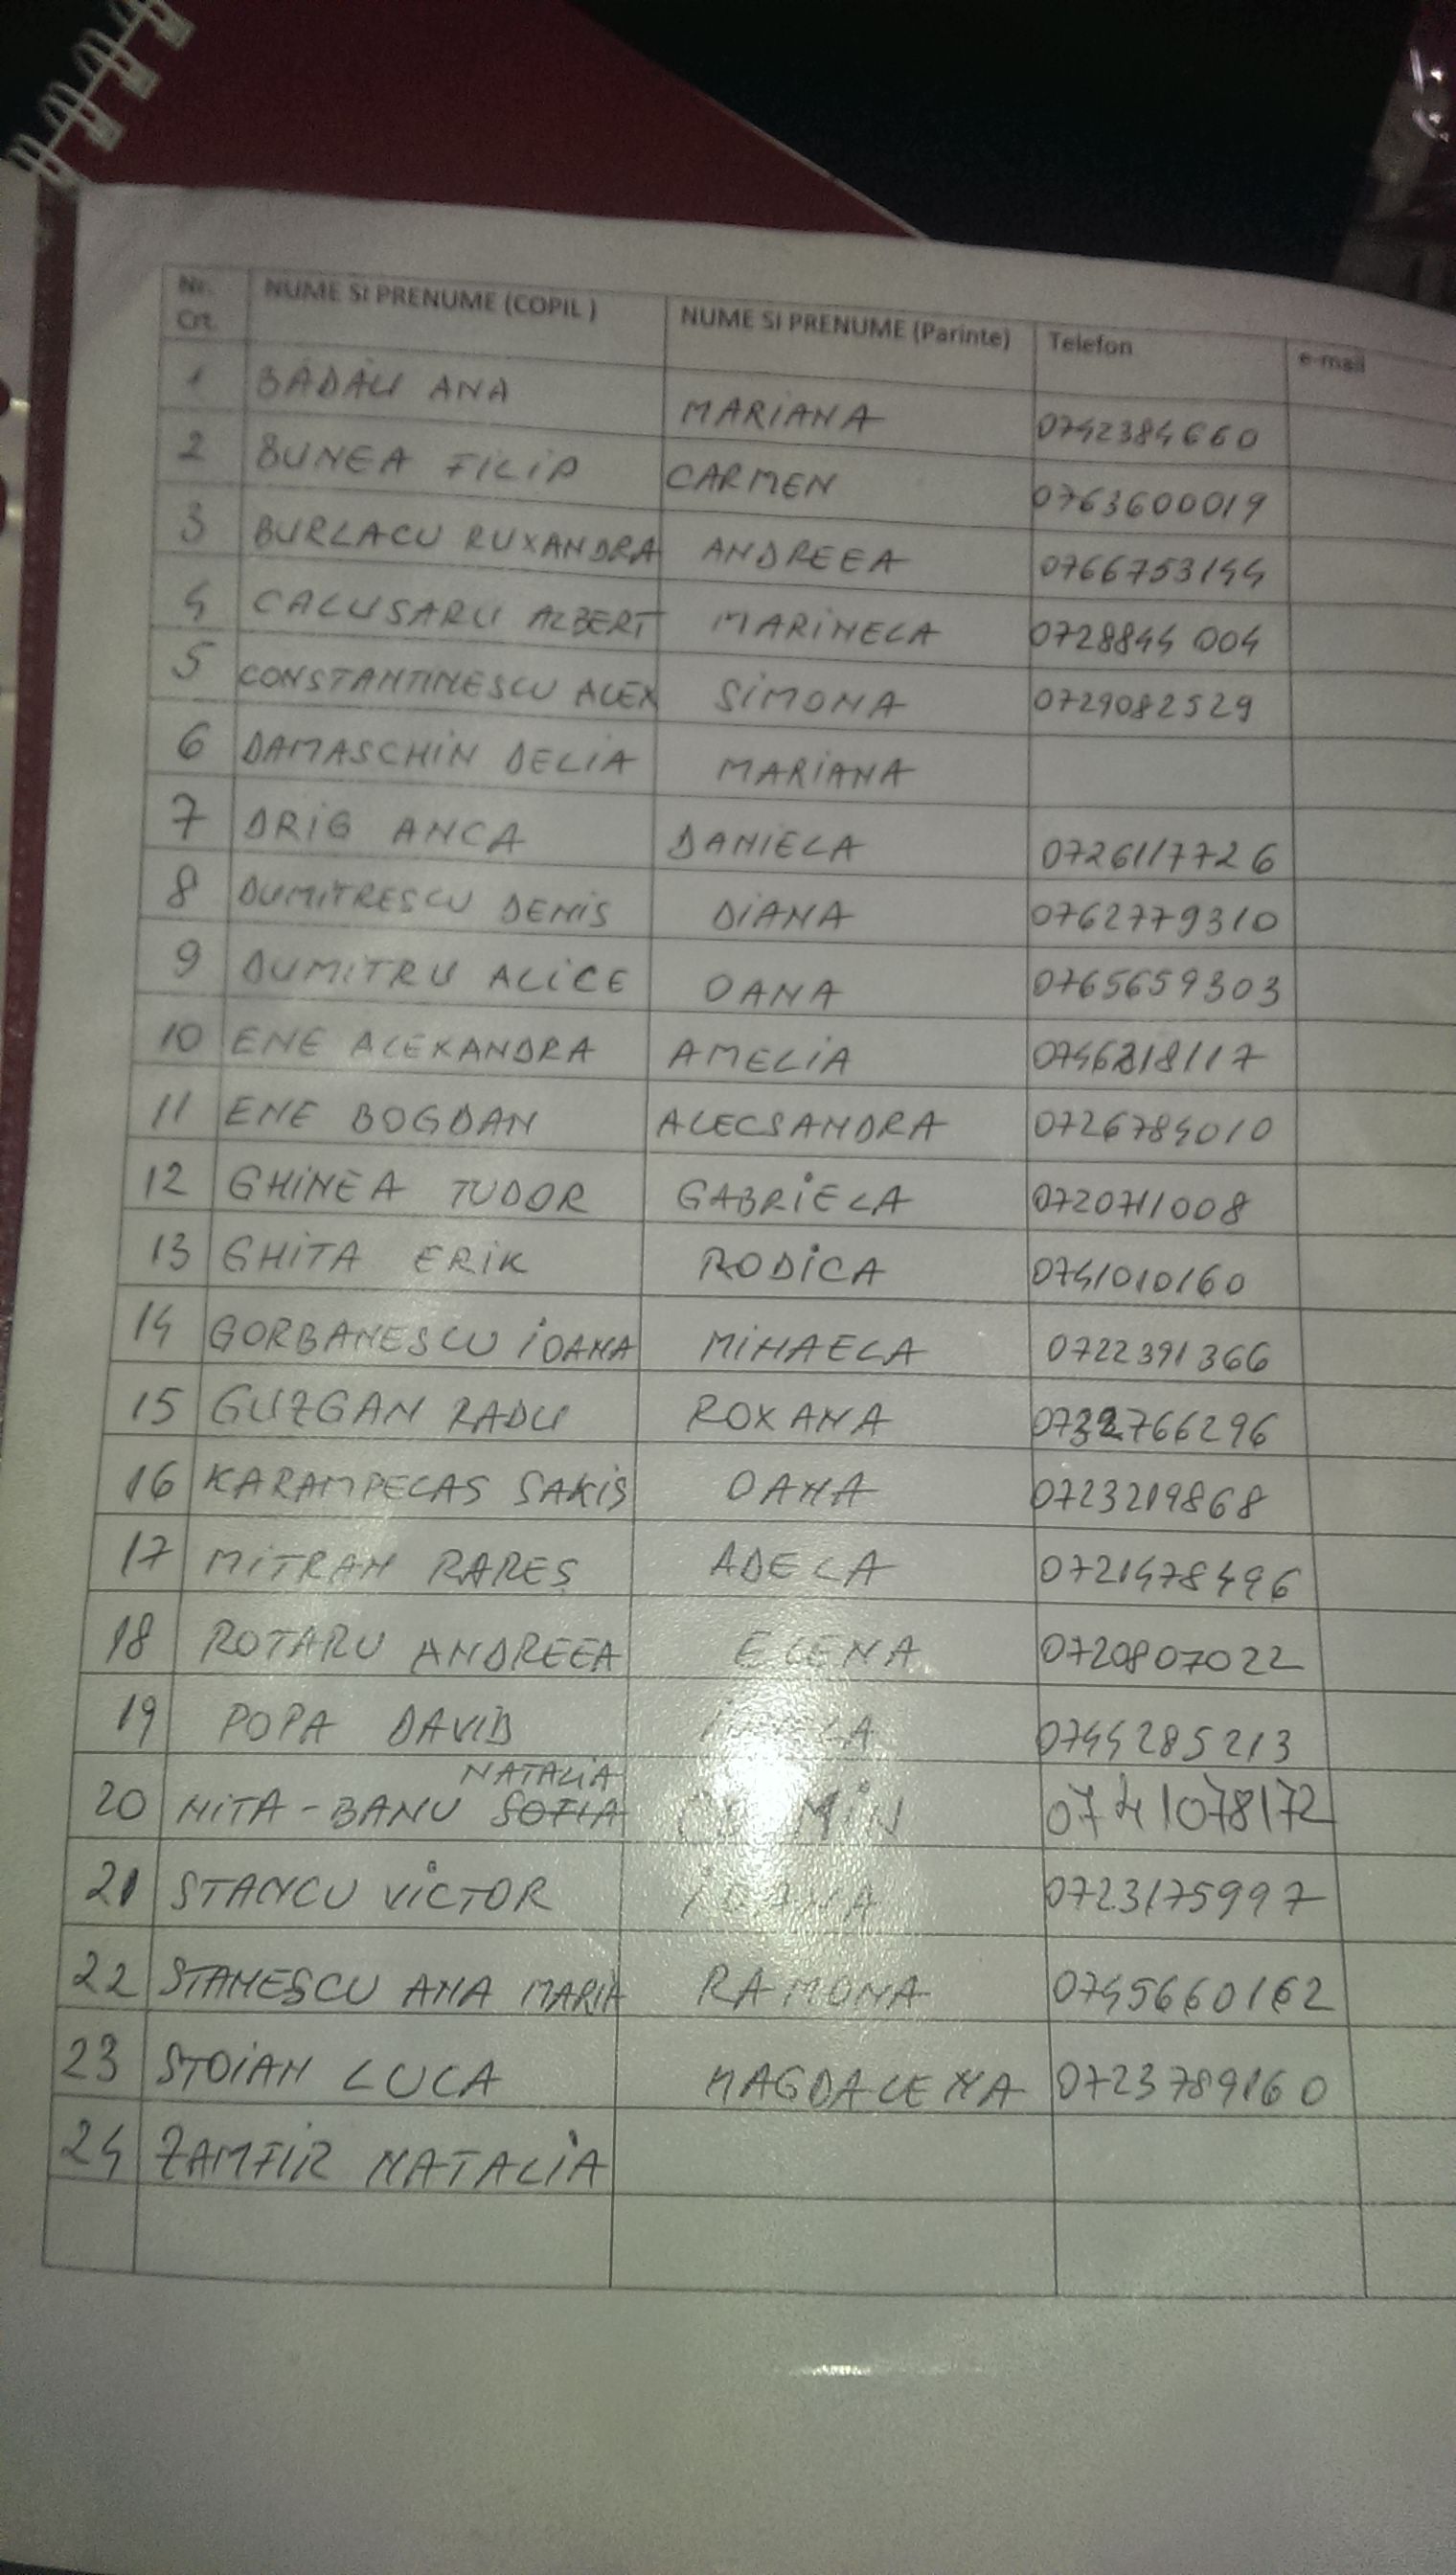 Nr. Crt. NUME SI PRENUME (COPIL ) NUME SI PRENUME (Parinte) Telefon e-mail
1 BĂDĂLI ANA MARIANA 0742384660
2 BUNEA FILIP CARMEN 0763600019
3 BURLACU RUXANDRA ANDREEA 0766753144
4 CALUSARU ALBERT MARINELA 0728844 004
5 CONSTANTINESCU ALEX SIMONA 0729082529
6 DAMASCHIN DELIA MARIANA
7 DRIG ANCA DANIELA 0726117726
8 DUMITRESCU DENIS DIANA 0762779310
9 DUMITRU ALICE OANA 0765659303
10 ENE ALEXANDRA AMELIA
11 ENE BOGDAN ALECSANDRA 0726784010
12 GHINEA TUDOR GABRIELA 0720711008
13 GHITA ERIK RODICA 0741010160
14 GORBANESCU IOANA MIHAELA 0722391366
15 GUZGAN RADU ROXANA
16 KARAMPELAS SAKIS OANA 0723219868
17 MITRAN RAREȘ ADELA 0721478496
18 ROTARU ANDREEA ELENA 0720807022
19 POPA DAVID 0744285213
NATALIA
20 NITA-BANU SOFIA 0741078172
21 STANCU VICTOR IOANA 0723175997
22 STANESCU ANA MARIA RAMONA 0745660162
23 STOIAN LUCA MAGDALENA 0723789160
24 ZAMFIR NATALIA